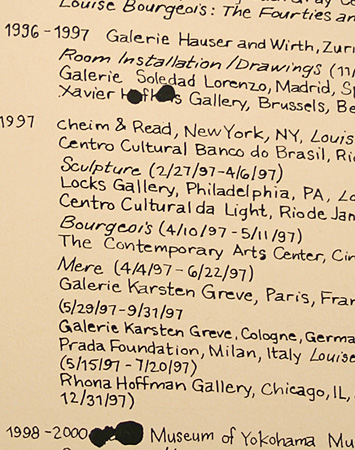 Louise Bourgeois: The Fourties an
1996-1997 Galerie Hauser and Wirth, Zuri
Room Installation/Drawings (11/
Galerie Soledad Lorenzo, Madrid, S
Xavier Gallery, Brussels, Be
1997 cheim & Read, New York, NY, Louis
Centro Cultural Banco do Brasil, Ri
Sculpture (2/27/97-4/6/97)
Locks Gallery, Philadelphia, PA, Lo
Centro Cultural da Light, Rio de Jan
Bourgeois (4/10/97-5/11/97)
The Contemporary Arts Center, Cin
Mere (4/4/97-6/22/97)
Galerie Karsten Greve, Paris, Fran
(5/29/97-9/31/97
Galerie Karsten Greve, Cologne, Germa
Prada Foundation, Milan, Italy Louise
(5/15/97-7/20/97)
Rhona Hoffman Gallery, Chicago, IL,
12/31/97)
1998-2000 Museum of Yokohama Mu